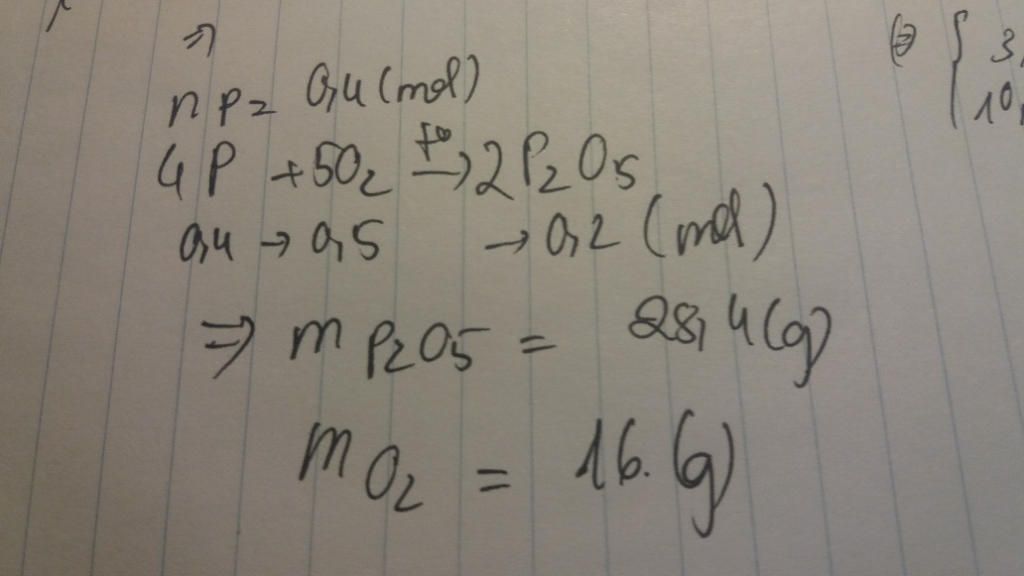 ⇒
n P = 0,4 (mol)
4P + 5O2 t°→ 2P2O5
0,4 → 0,5 → 0,2 (mol)
⇒ m P2O5 = 28,4 (g)
m O2 = 16. (g)
⇔ { 3,
10,